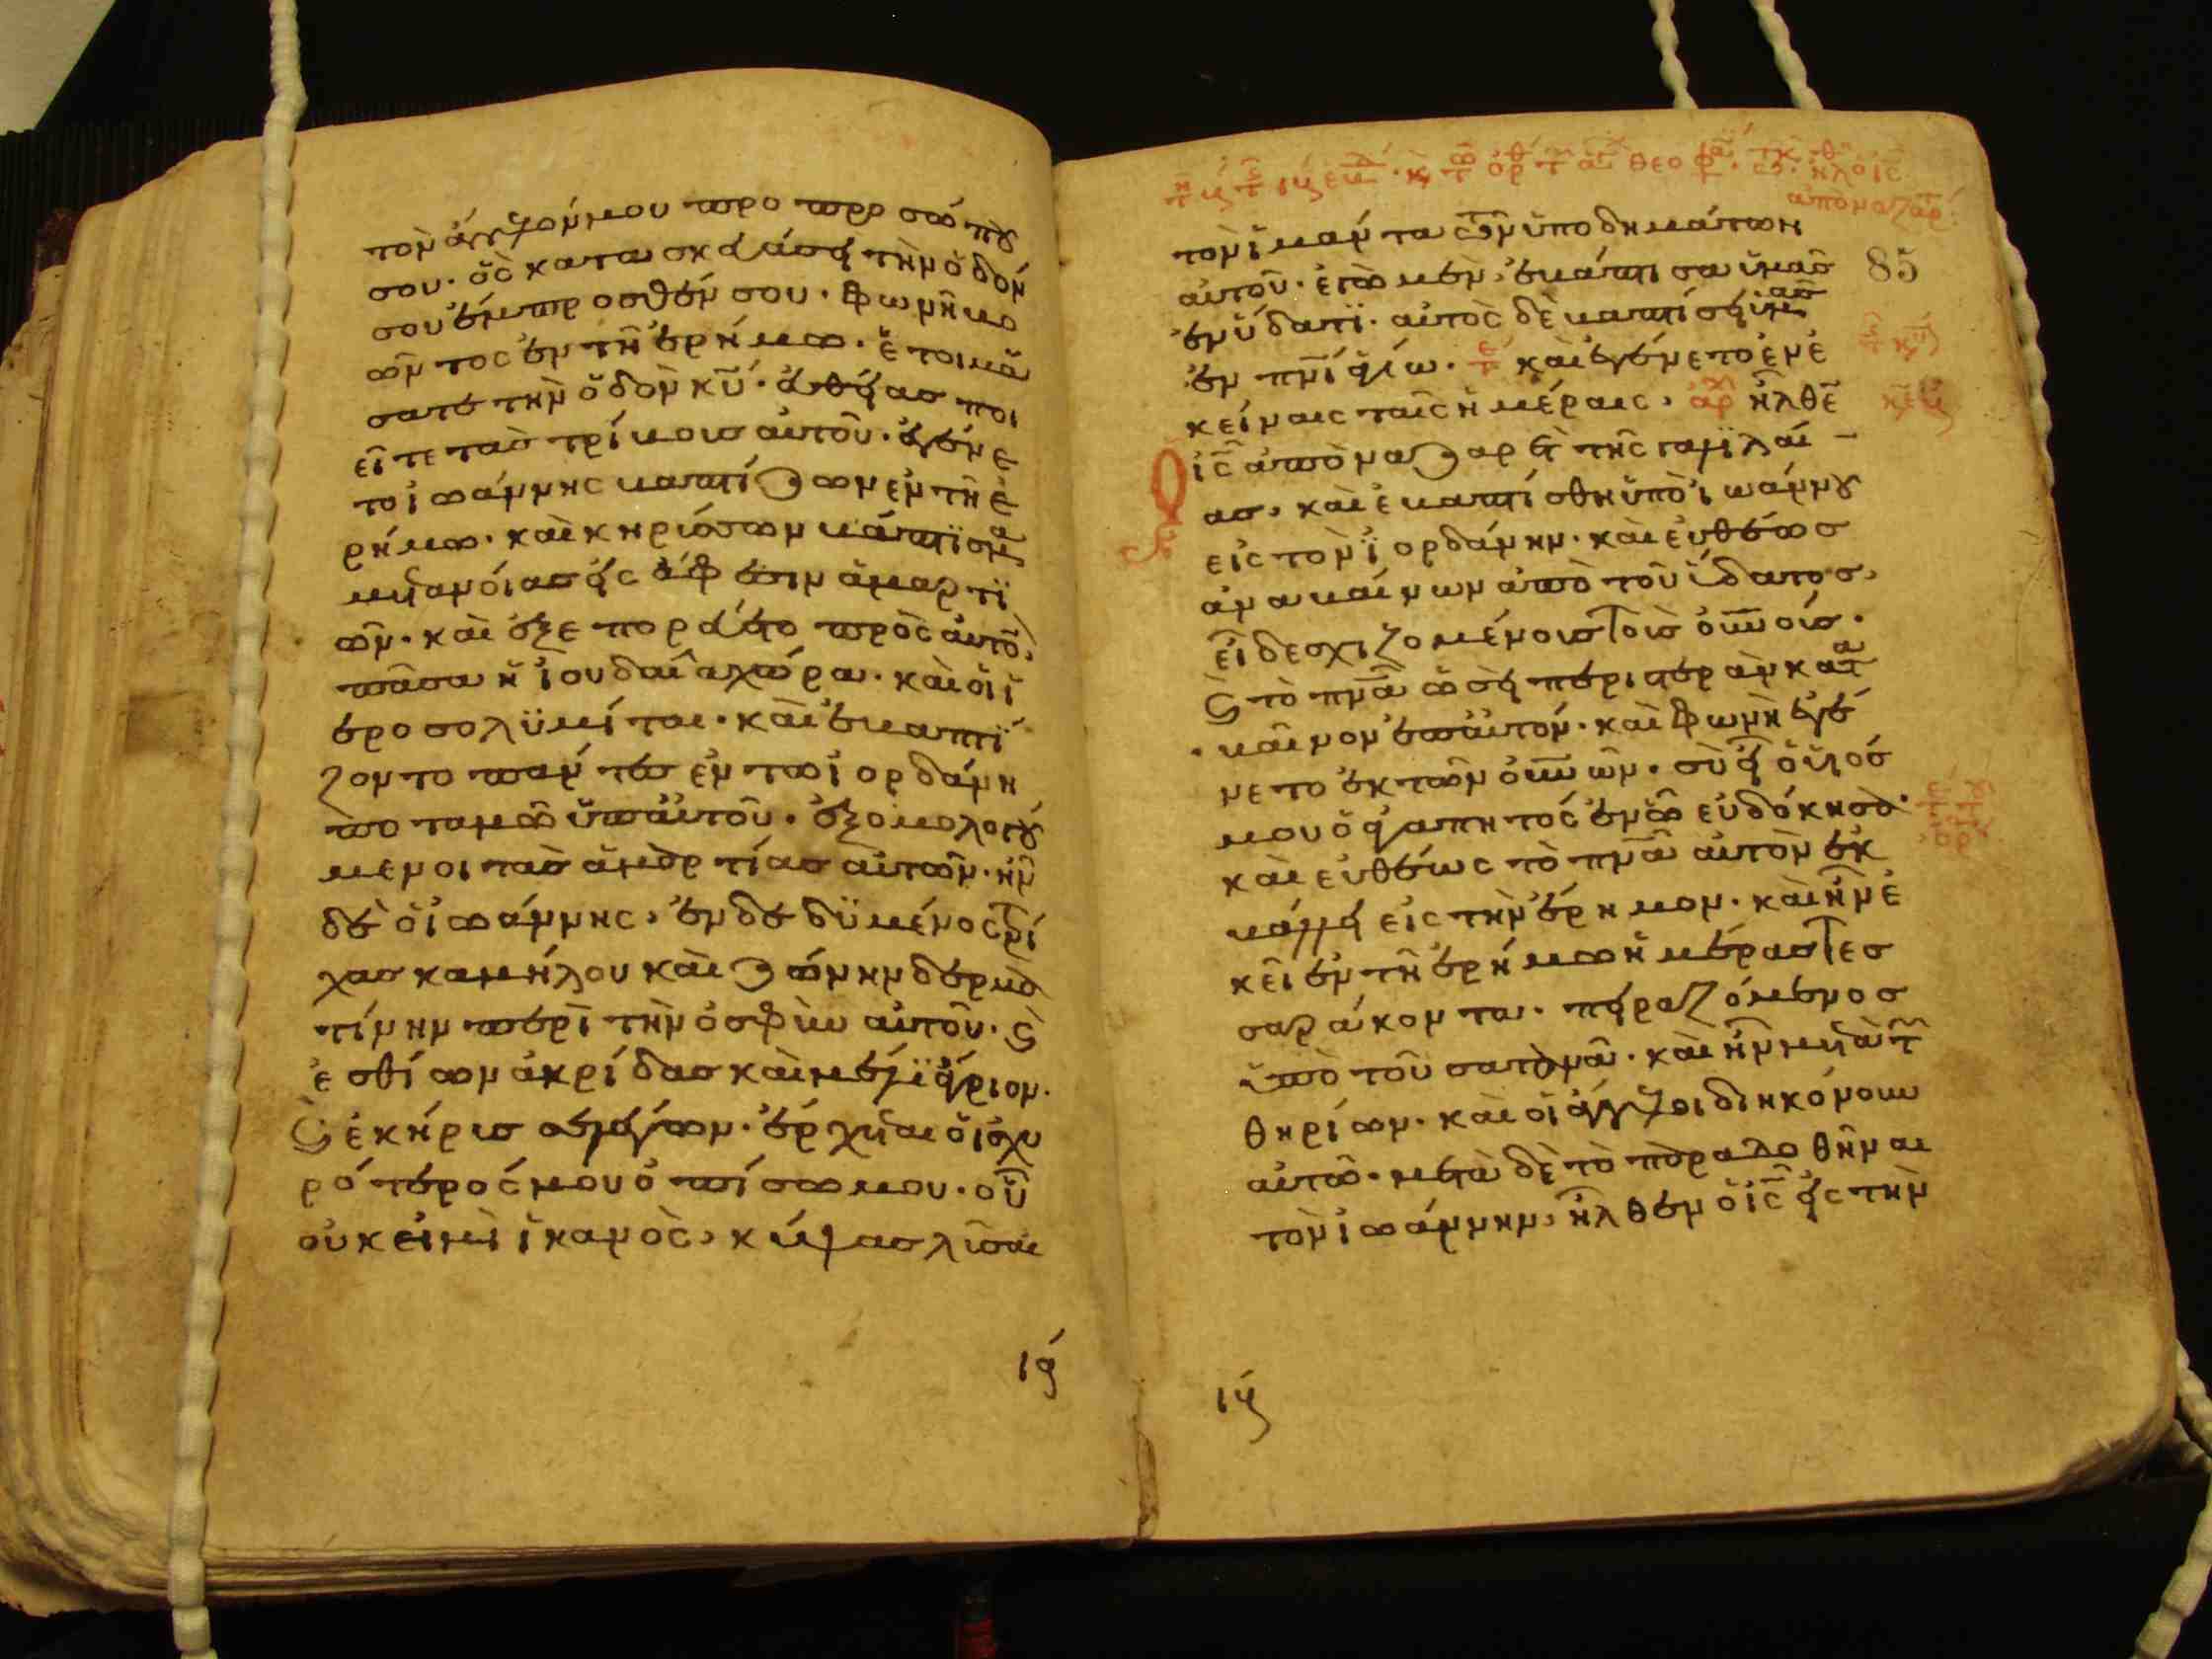 τὸν ἄγγελόν μου προ προσώπου
σου· ὃς κατασκευάσει τὴν ὁδόν
σου ἔμπροσθέν σου· φωνὴ βο
ῶντος ἐν τῆ ἐρήμω· ἑτοιμά
σατε τὴν ὁδὸν κ̅υ̅· εὐθείας ποι
εῖτε τὰς τρίβους αὐτοῦ· ἐγένε
το ἰωάννης βαπτίζων ἐν τῆ ἐ
ρήμω· καὶ κηρύσσων βάπτισμα
μετανοίας εἰς ἄφεσιν ἁμαρτι
ῶν· καὶ ἐξεπορεύετο πρὸς αὐτὸν,
πᾶσα ἡ ἰουδαία χώρα· καὶ οἱ ἱ
εροσολυμίται· καὶ ἐβαπτί
ζοντο πάντες ἐν τῶ ἰορδάνη
ποταμῶ ὑπ' αὐτοῦ· ἐξομολογού
μενοι τὰς ἁμαρτίας αὐτῶν· ἦν
δὲ ὁ ἰωάννης, ἐνδεδυμένος τρί
χας καμήλου καὶ ζώνην δερμα
τίνην περὶ τὴν ὀσφὺν αὐτοῦ· ϗ
ἐσθίων ἀκρίδας καὶ μέλι ἄγριον·
ϗ ἐκήρυσσε λέγων· ἔρχεται ὁ ἰσχυ
ρότερός μου ὀπίσω μου· οὗ
οὐκ εἰμὶ ἱκανὸς, κύψας λῦσαι
ιϛ
τὸν ἱμάντα τῶν ὑποδημάτων
85
αὐτοῦ· ἐγὼ μὲν ἐβάπτισα ὑμᾶς
ἐν ὕδατι· αὐτὸς δὲ βαπτίσει ὑμᾶς
ἐν π̅ν̅ι̅ ἁγίω· καὶ ἐγένετο ἐν ἐ
κείναις ταῖς ἡμέραις, ἦλθεν
ὁ ι̅ς̅ ἀπὸ ναζαρὲτ τῆς γαλιλαί
ας, καὶ ἐβαπτίσθη ὑπὸ ἰωάννου
εἰς τὸν ἰορδάνην· καὶ εὐθέως
ἀναβαίνων ἀπὸ τοῦ ὕδατος,
εἶδε σχιζομένους τοὺς ο̅υ̅ν̅ούς·
ϗ τὸ π̅ν̅α̅ ὡσεὶ περιστερὰν κατα
βαῖνον ἐπ' αὐτόν· καὶ φωνὴ ἐγέ
νετο ἐκ τῶν ο̅υ̅ν̅ῶν· σὺ εἶ ὁ υἱός
μου ὁ ἀγαπητός ἐν ὧ εὐδόκησα·
καὶ εὐθέως τὸ π̅ν̅α̅ αὐτὸν ἐκ
βάλλει εἰς τὴν ἔρημον· καὶ ἦν ἐ
κεῖ ἐν τῆ ἐρήμω ἡμέρας τεσ
σαράκοντα· πειραζόμενος
ὑπὸ τοῦ σατανᾶ· καὶ ἦν μετὰ τῶν
θηρίων· καὶ οἱ ἄγγελοι διηκόνουν
αὐτῶ· μετὰ δὲ τὸ παραδοθῆναι
τὸν ἰωάννην, ἦλθεν ὁ ι̅ς̅ εἰς τὴν